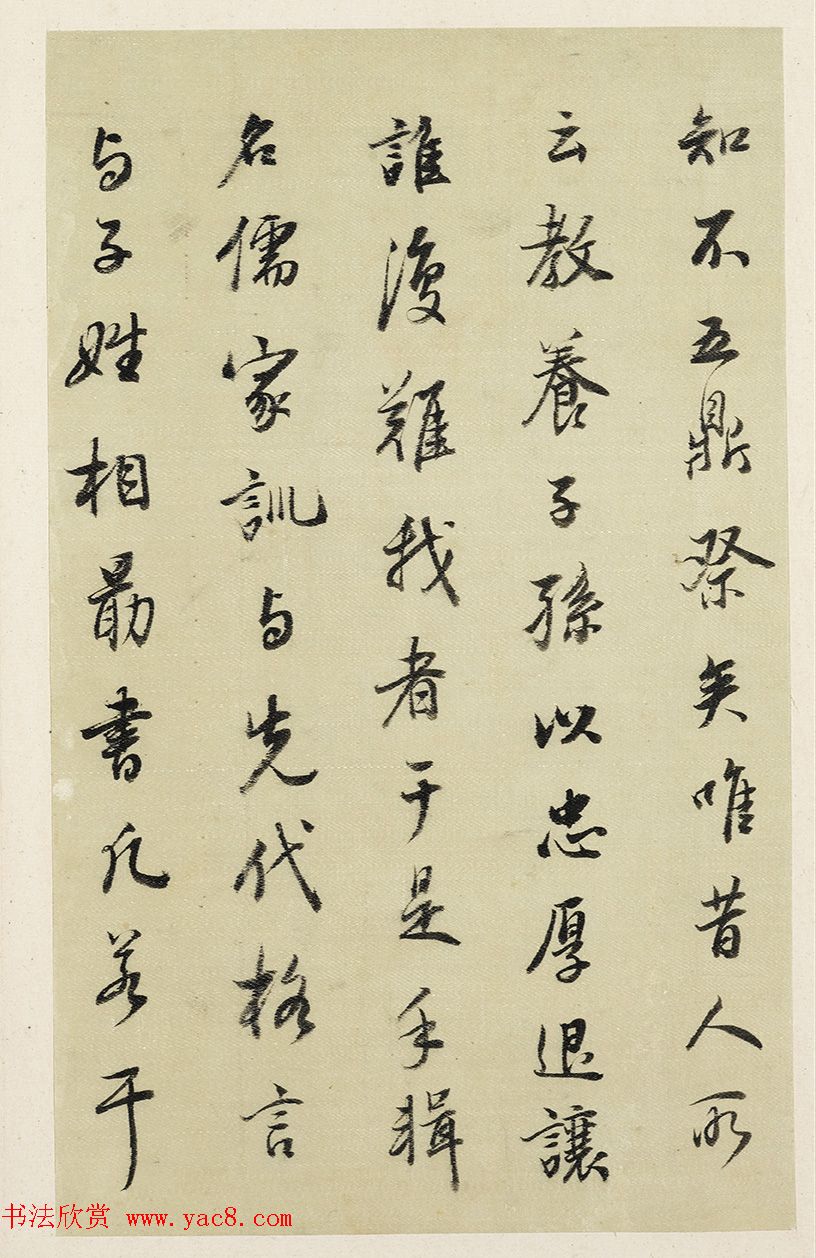 知不五鼎祭矣唯昔人所
云教養子孫以忠厚退讓
誰復難我者于是手輯
名儒家訓与先代格言
与子姓相勗書凡若干
书法欣赏 www.yac8.com